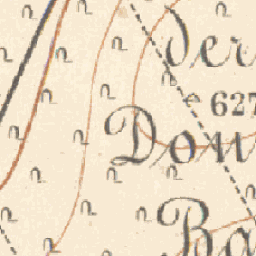 der
627
Don
Ba